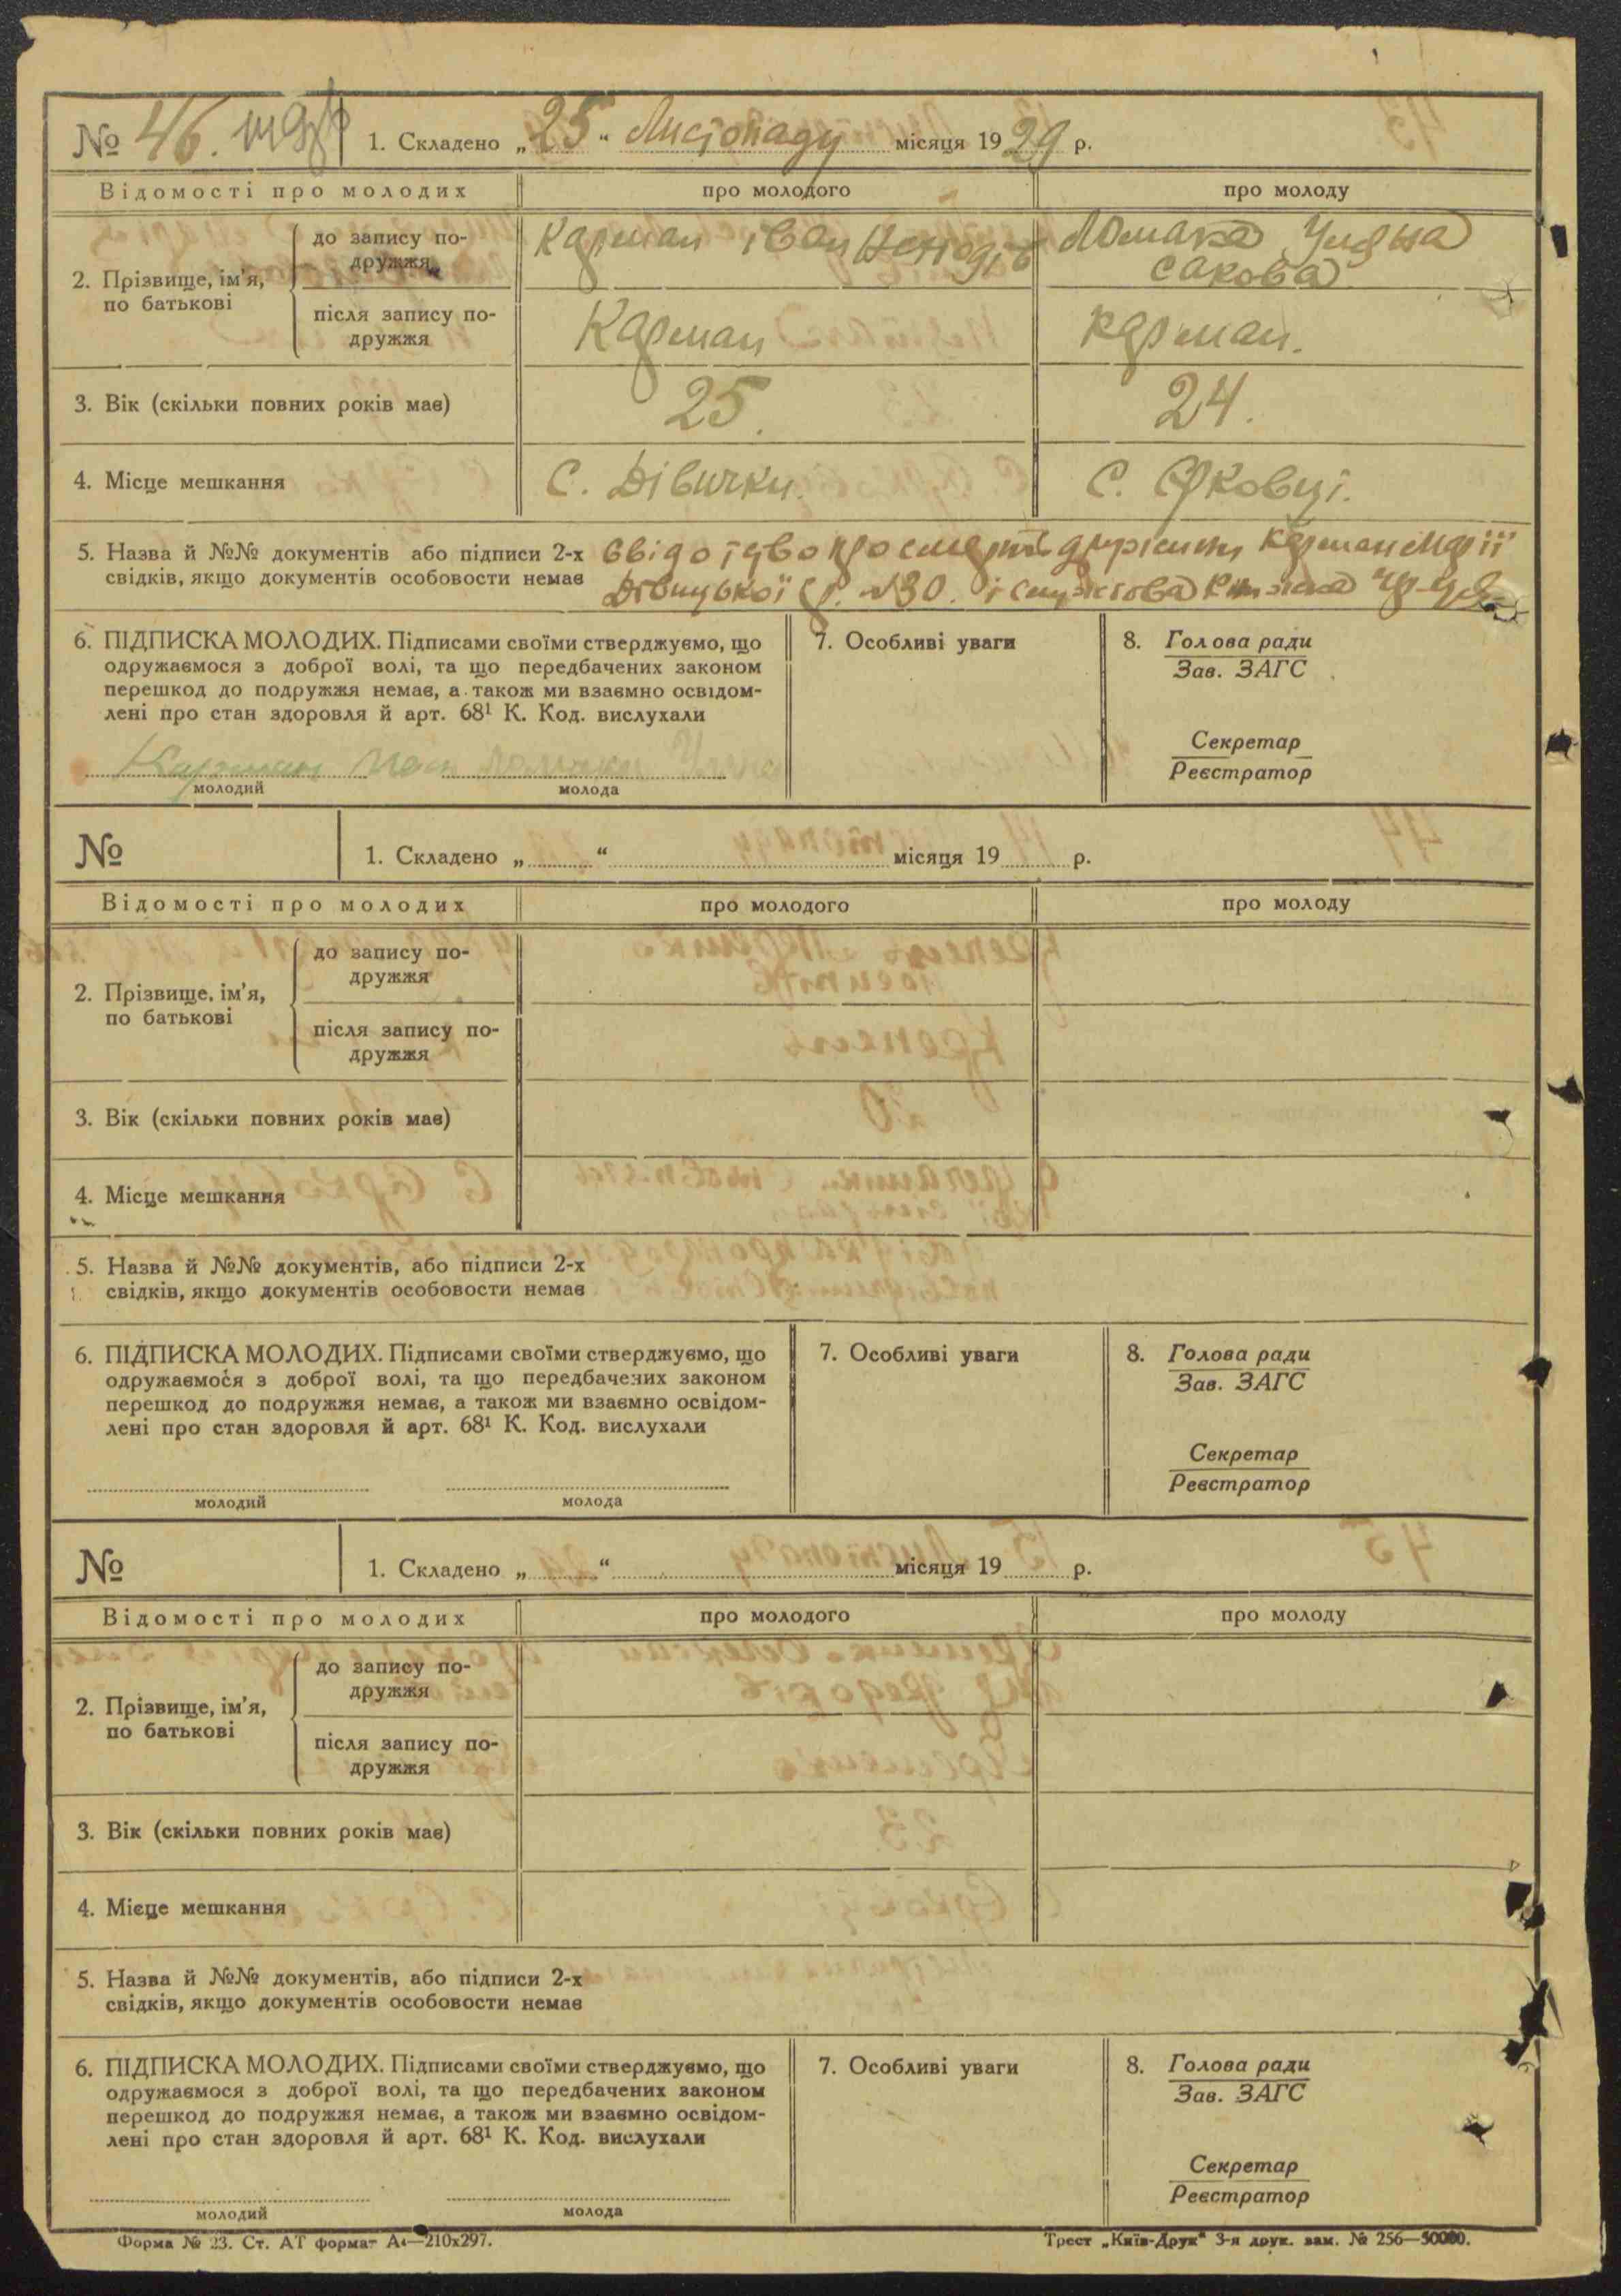 № 46. 1. Складено „25“ Листопаду місяця 1929 р.
Відомості про молодих про молодого про молоду
2. Прізвище, ім’я, по батькові
до запису по-
дружжя
Карман іван Ломака Уляна
сакова
після запису по-
дружжя
Карман Карман.
3. Вік (скільки повних років має) 25. 24.
4. Місце мешкання С. Дівички. С. Єрковці.
5. Назва й №№ документів або підписи 2-х
свідків, якщо документів особовости немає
про смерть дружини Карман Марії
№30. і
6. ПІДПИСКА МОЛОДИХ. Підписами своїми стверджуємо, що
одружаємося з доброї волі, та що передбачених законом
перешкод до подружжя немає, а також ми взаємно освідом-
лені про стан здоровля й арт. 68¹ К. Код. вислухали
Карман Іван Ломака Уляна
молодий молода
7. Особливі уваги
8. Голова ради
Зав. ЗАГС
Секретар
Реєстратор
№ 1. Складено „ “ місяця 19 р.
Відомості про молодих про молодого про молоду
2. Прізвище, ім’я,
по батькові
до запису по-
дружжя
після запису по-
дружжя
3. Вік (скільки повних років має)
4. Місце мешкання
5. Назва й №№ документів, або підписи 2-х
свідків, якщо документів особовости немає
6. ПІДПИСКА МОЛОДИХ. Підписами своїми стверджуємо, що
одружаємося з доброї волі, та що передбачених законом
перешкод до подружжя немає, а також ми взаємно освідом-
лені про стан здоровля й арт. 68¹ К. Код. вислухали
молодий молода
7. Особливі уваги
8. Голова ради
Зав. ЗАГС
Секретар
Реєстратор
№ 1. Складено „ “ місяця 19 р.
Відомості про молодих про молодого про молоду
2. Прізвище, ім’я,
по батькові
до запису по-
дружжя
після запису по-
дружжя
3. Вік (скільки повних років має)
4. Місце мешкання
5. Назва й №№ документів, або підписи 2-х
свідків, якщо документів особовости немає
6. ПІДПИСКА МОЛОДИХ. Підписами своїми стверджуємо, що
одружаємося з доброї волі, та що передбачених законом
перешкод до подружжя немає, а також ми взаємно освідом-
лені про стан здоровля й арт. 68¹ К. Код. вислухали
молодий молода
7. Особливі уваги
8. Голова ради
Зав. ЗАГС
Секретар
Реєстратор
Форма № 23. Ст. АТ формат А4—210x297. Трест „Київ-Друк“ 3-я друк. зам. № 256—50000.